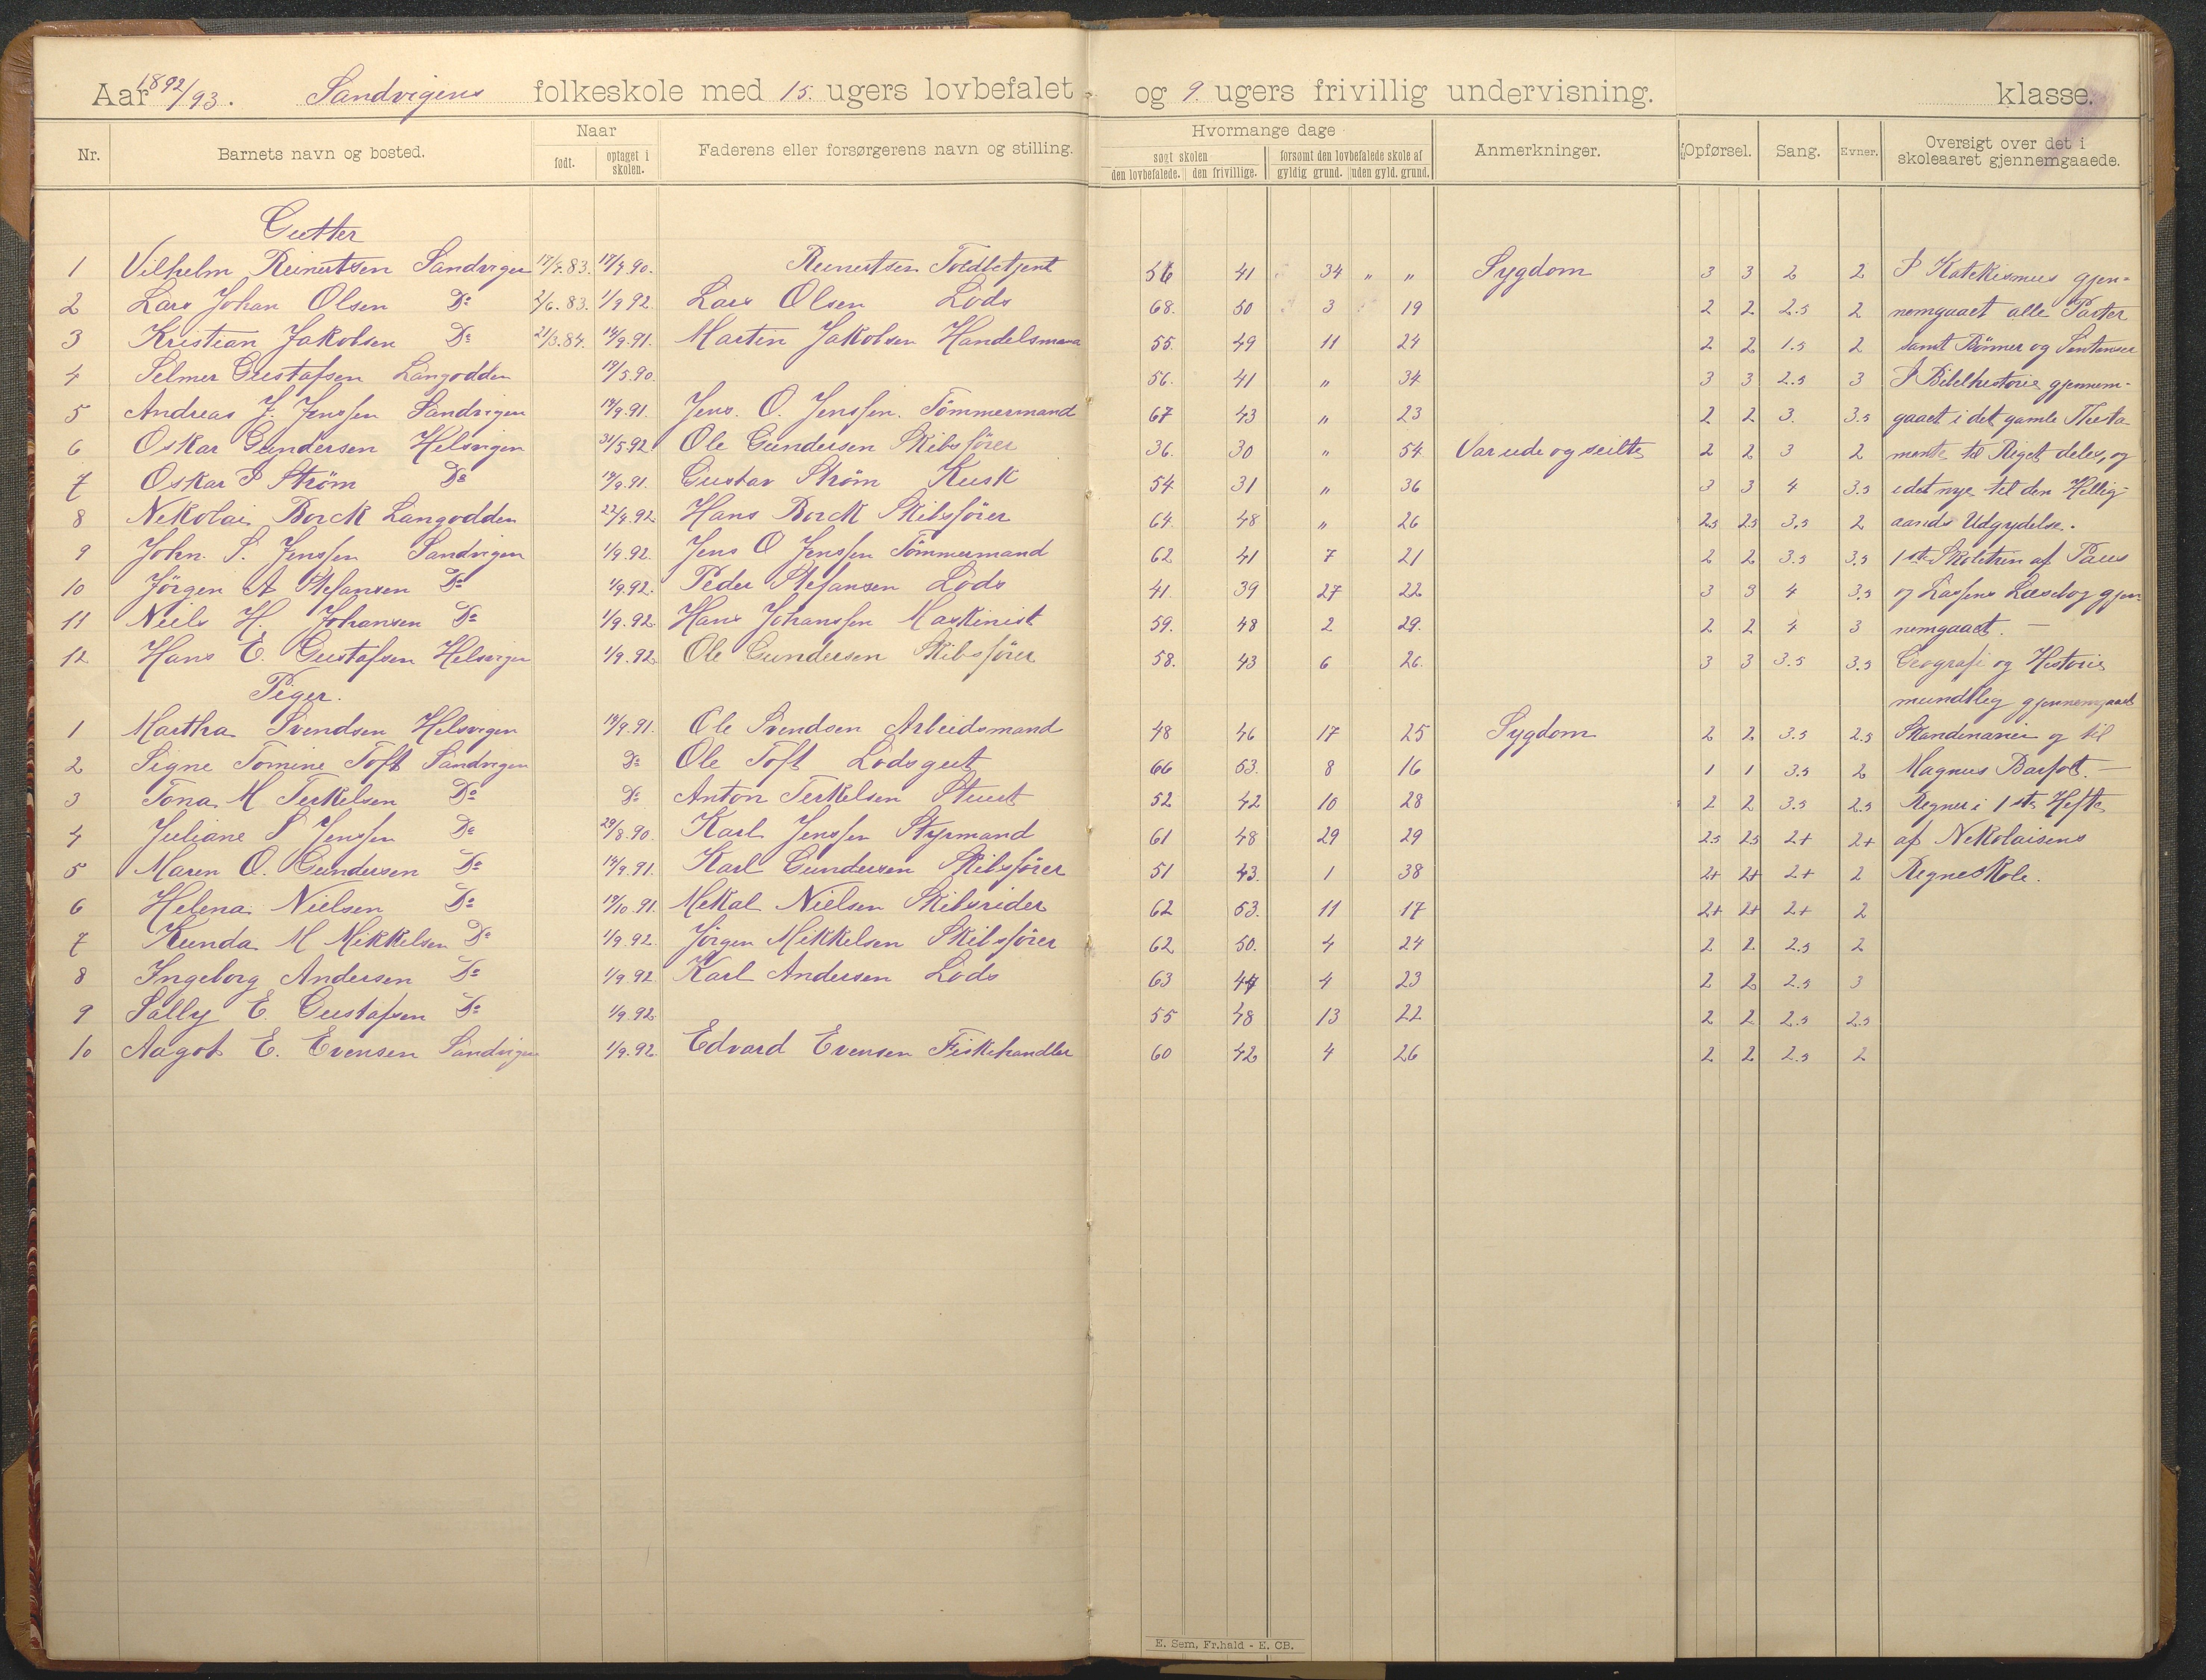 Aar 1892/93. Sandvigens folkeskole med 15. ugers lovbefalet og 9. ugers frivillig undervisning. klasse.
Nr. Barnets navn og bosted. Naar født. optaget i skolen. Faderens eller forsørgerens navn og stilling. Hvormange dage søgt skolen den lovbefalede. den frivillige. forsømt den lovbefalede skole af gyldig grund. uden gyld. grund. Anmerkninger. Opførsel. Sang. Evner. Oversigt over det i skoleaaret gjennemgaaede.
Gutter
1 Vilhelm Reinertsen Sandvigen 17/4.83. 17/4.90. Reinertsen Toldbetjent 56 41 34 " " Sygdom 3 3 2 2 I Katekismus gjen-
2 Lars Johan Olsen Do 2/6.83. 1/9 92. Lars Olsen Lods 68. 50 3 19 2 2 2.5 2 nemgaaet alle Parter
3 Kristian Jakobsen Do 21/3.84. 14/9.91. Martin Jakobsen Handelsmand 55. 49 11 24 2 2 1.5 2 samt Bønner og Sentenser
4 Selmer Gustafsen Langodden 19/5.90. 56. 41 " 34 3 3 2.5 3 I Bibelhistorie gjennem-
5 Andreas J. Jenssen Sandvigen 14/9.91. Jens. O. Jenssen. Tømmermand 67 43 " 23 2 2 3. 3.5 gaaet i det gamle Thesta-
6 Oskar Gundersen Helsvigen 31/5.92 Ole Gundersen Skibsfører 36. 30 " 54 Var ude og seilte 2 2 3 2 mente til Riget deles, og
7 Oskar P Strøm Do 14/9.91. Gustav Strøm Kusk 54. 31 " 36 3 3 4 3.5 i det nye til den Hellig-
8 Nekolai Borck Langodden 22/4.92 Hans Borck Skibsfører 64. 48 " 26 2.5 2.5 3.5 2 aands Udgydelse.
9 John. S. Jenssen Sandvigen 1/9.92. Jens O Jenssen Tømmermand 62 41 7 21 2 2 3.5 3.5 1ste Skoletrin af Paus
10 Jørgen A Stefansen Do 1/9.92. Peder Stefansen Lods 41. 39 27 22 3 3 4 3.5 og Lassens Læsebog gjen-
11 Niels H. Johansen Do 1/9.92. Hans Johanssen Maskinist 59. 48 2 29. 2 2 4 3 nemgaaet. —
12 Hans E. Gustafsen Helsvigen 1/9.92. Ole Gundersen Skibsfører 58. 43 6 26. 3 3 3.5 3.5 Geografi og Historie
Piger. mundtlig gjennemgaaet
1 Martha Svendsen Helsvigen 14/9.91. Ole Svendsen Arbeidsmand 48 46 17 25 Sygdom 2 2 3.5 2.5 Skandinavien og til
2 Signe Tomine Toft Sandvigen Do Ole Toft Lodsgut 66 53. 8 16 1 1 3.5 2 Magnus Barfot. —
3 Tona M Terkelsen Do Do Anton Terkelsen Stuert 52 42 10 28 2 2 3.5 2.5 Regner i 1ste Hefte
4 Juliane S Jenssen Do 29/8.90. Karl Jenssen Styrmand 61 48 29 29 2.5 2.5 2+ 2+ af Nekolaisens
5 Maren O. Gundersen Do 14/9.91. Karl Gundersen Skibsfører 51 43. 1 38 2+ 2+ 2+ 2 Regneskole.
6 Helena Nielsen Do 19/10.91. Mekal Nielsen Skibsrider 62 53. 11 17 2+ 2+ 2+ 2
7 Kunda M Mikkelsen Do 1/9.92. Jørgen Mikkelsen Skibsfører 62 50. 4 24 2 2 2.5 2
8 Ingeborg Andersen Do 1/9.92 Karl Andersen Lods 63 44 4 23 2 2 2.5 3
9 Sally E. Gustafsen Do 1/9.92. 55 48 13 22 2 2 2.5 2.5
10 Aagot E. Evensen Sandvigen 1/9.92. Edvard Evensen Fiskehandler 60 42 4 26 2 2 2.5 2
E. Sem, Fr.hald - E. CB.